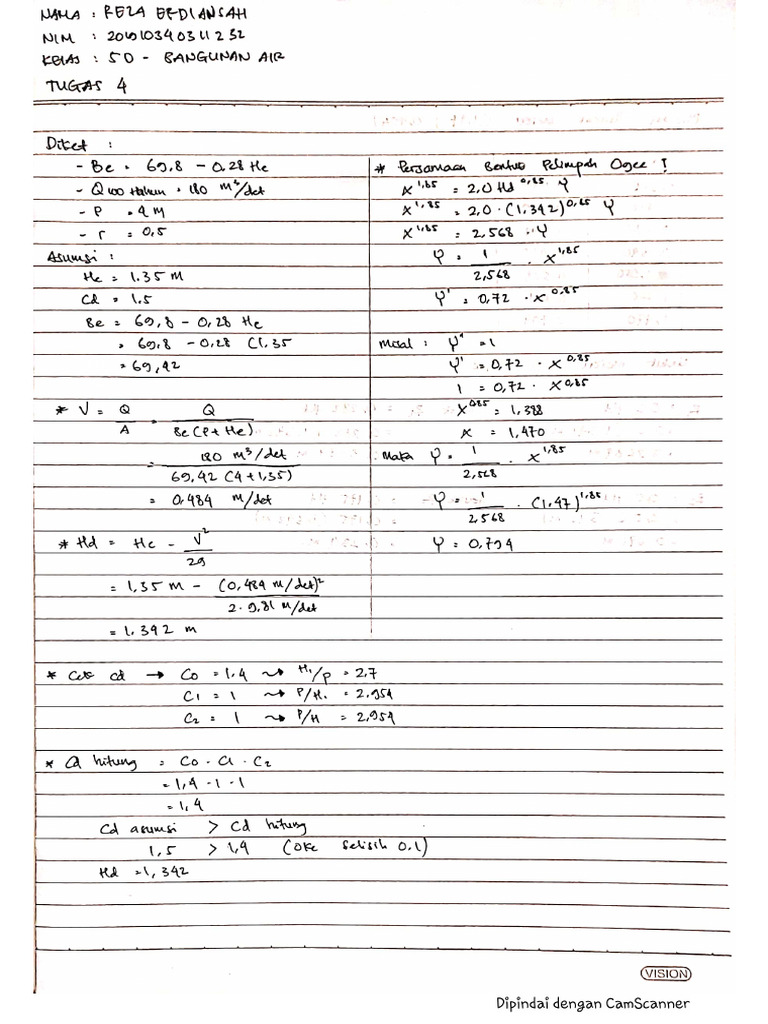 NAMA : REZA ERDIANSAH
NIM : 201010340311232
KELAS : 5D - BANGUNAN AIR
TUGAS 4
Diket :
- Be = 69,8 - 0.28 He
- Q100 tahun = 180 m³/det
- P = 4 m
- r = 0,5
Asumsi :
He = 1.35 m
Cd = 1.5
Be = 69,8 - 0,28 He
= 69.8 - 0.28 (1,35
= 69,42
* V = Q/A = Q/Be(P+He)
= 180 m³/det / 69,42 (4+1,35)
= 0.484 m/det
* Hd = He - V²/2g
= 1,35 m - (0,484 m/det)²/2 . 9,81 m/det
= 1.342 m
* Persamaan Bentuk Pelimpah Ogee :
X^1,85 = 2,0 Hd^0,85 Y
X^1,85 = 2,0 . (1,342)^0,85 Y
X^1,85 = 2,568 . Y
Y = 1/2,568 . X^1,85
Y' = 0,72 . X^0,85
Misal : Y' = 1
Y' = 0,72 . X^0,85
1 = 0,72 . X^0,85
X^0,85 = 1,388
X = 1,470
Maka Y = 1/2,568 . X^1,85
Y = 1/2,568 . (1,47)^1,85
Y = 0,794
* Cek Cd → C0 = 1,4 ⤳ H₁/P = 2.7
C1 = 1 ⤳ P/H₁ = 2,954
C2 = 1 ⤳ P/H = 2,954
* Cd hitung = C0 . C1 . C2
= 1,4 . 1 . 1
= 1,4
Cd asumsi > Cd hitung
1,5 > 1,4 (oke selisih 0.1)
Hd = 1,342
VISION
Dipindai dengan CamScanner